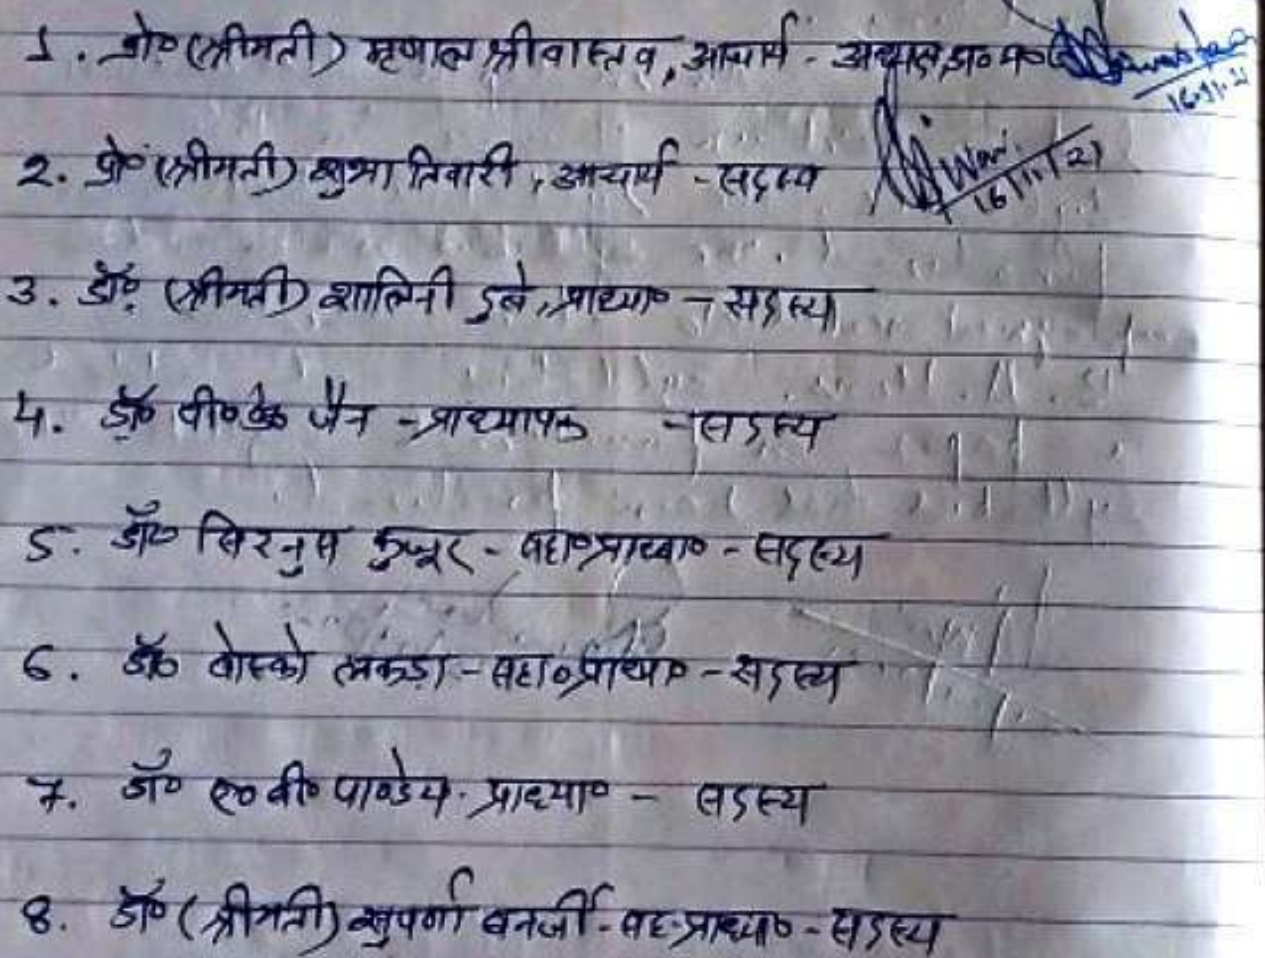 1. प्रो० (श्रीमती) मृणाल श्रीवास्तव, आचार्य - अध्यक्ष, 16.11.21
2. प्रो० (श्रीमती) शुभा तिवारी, आचार्य - सदस्य 16/11/21
3. डॉ० (श्रीमती) शालिनी दुबे, प्राध्या० - सदस्य
4. डॉ० पी० के० जैन - प्राध्यापक - सदस्य
5. डॉ० कुजूर - सहा०प्राध्या० - सदस्य
6. डॉ० बोस्को लकड़ा - सहा०प्राध्या० - सदस्य
7. डॉ० ए० वी० पाण्डेय. प्राध्या० - सदस्य
8. डॉ० (श्रीमती) सुपर्णा बनर्जी - सह-प्राध्या० - सदस्य